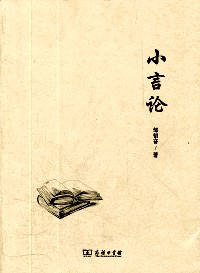 小言论
邹韬奋 著
商务印书馆